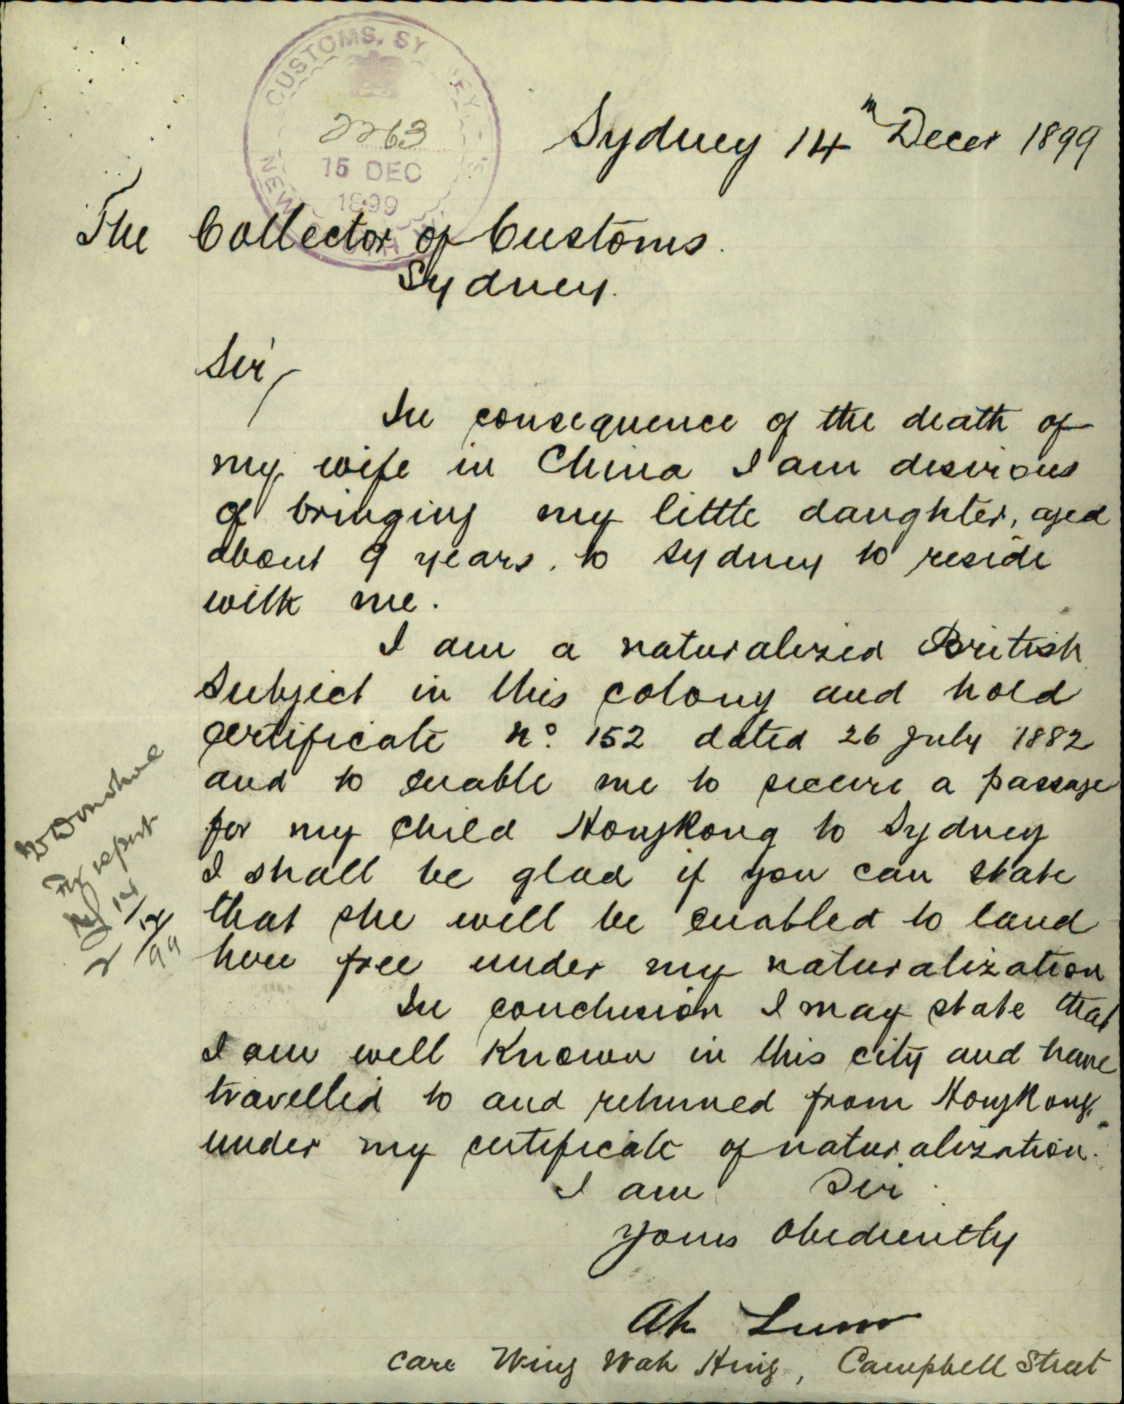 CUSTOMS, SYDNEY
2263
15 DEC
1899
NEW
Sydney 14th Decer 1899
The Collector of Customs.
Sydney.
Sir,
In consequence of the death of
my wife in China I am desirous
of bringing my little daughter, aged
about 9 years. to Sydney to reside
with me.
I am a naturalized British
Subject in this colony and hold
certificate No. 152 dated 26 July 1882
and to enable me to secure a passage
for my child HongKong to Sydney
I shall be glad if you can state
that she will be enabled to land
here free under my naturalization
In conclusion I may state that
I am well Known in this city and have
travelled to and returned from HongKong,
under my certificate of naturalization.
I am Sir
Yours Obediently
Ah Lum
Care Wing Wah Hing, Campbell Street
Mr Donohoe
For report